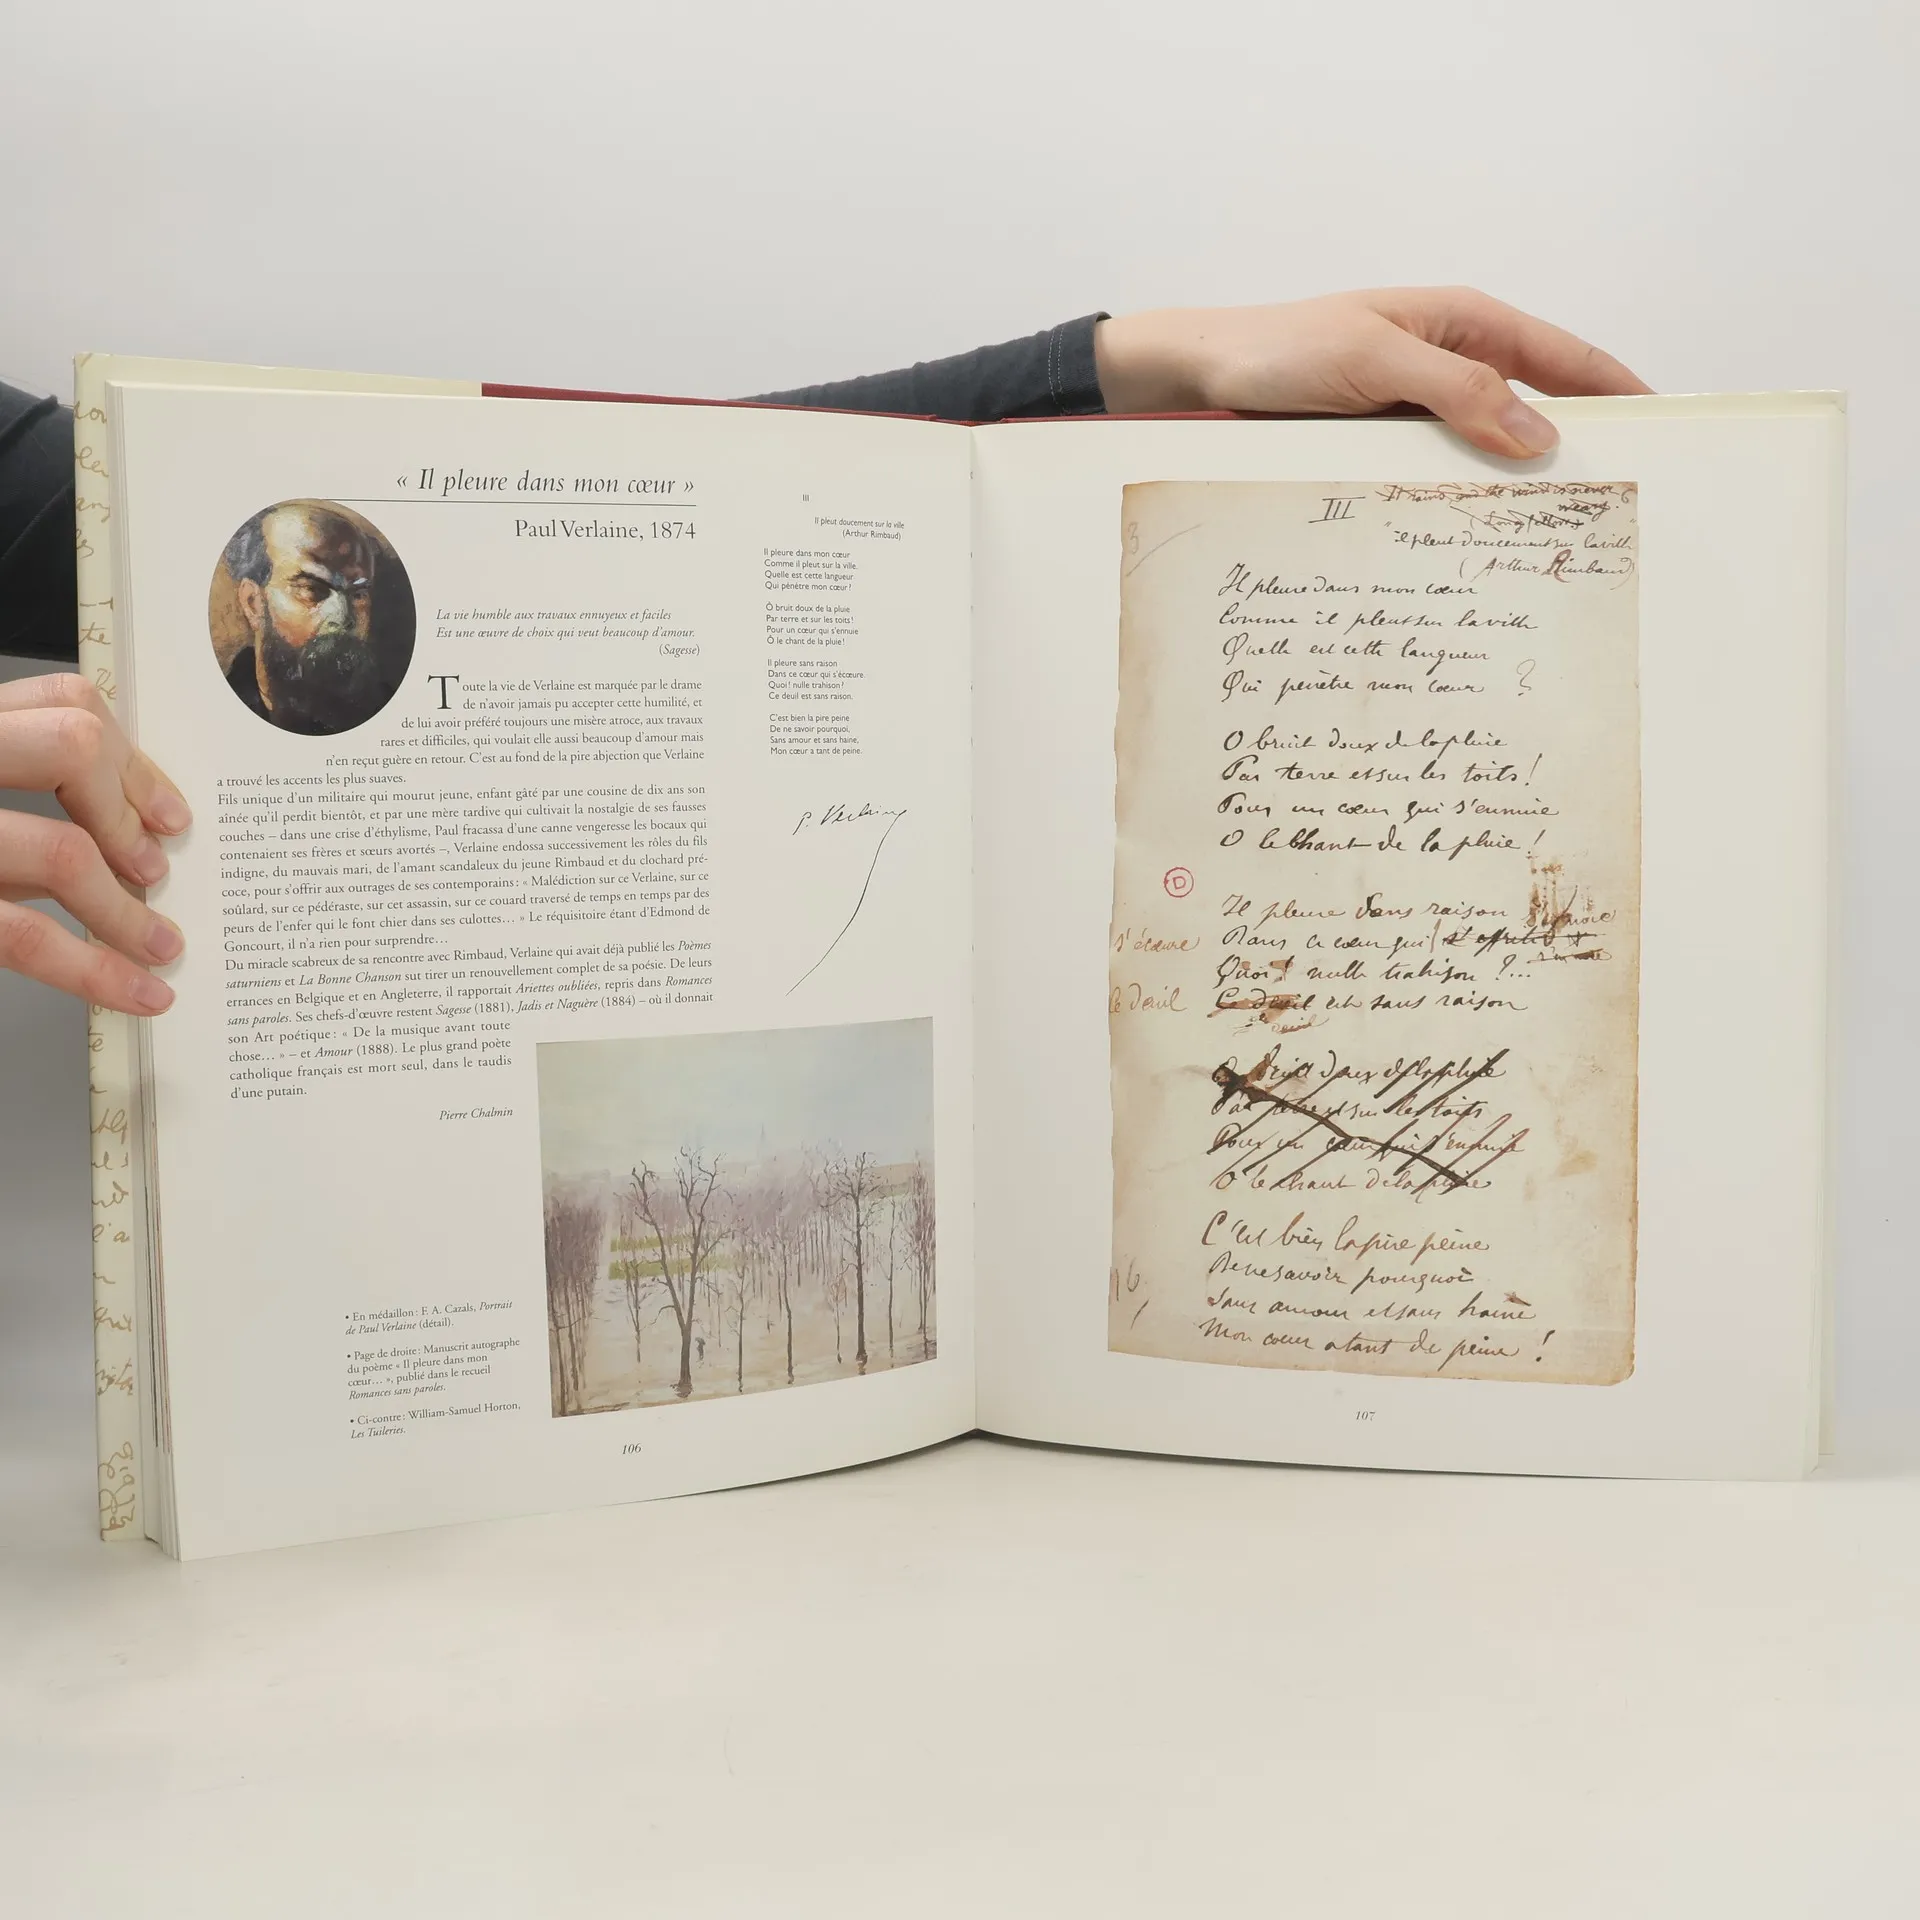 « Il pleure dans mon cœur »
Paul Verlaine, 1874
La vie humble aux travaux ennuyeux et faciles
Est une œuvre de choix qui veut beaucoup d'amour.
(Sagesse)
Toute la vie de Verlaine est marquée par le drame
de n'avoir jamais pu accepter cette humilité, et
de lui avoir préféré toujours une misère atroce, aux travaux
rares et difficiles, qui voulait elle aussi beaucoup d'amour mais
n'en reçut guère en retour. C'est au fond de la pire abjection que Verlaine
a trouvé les accents les plus suaves.
Fils unique d'un militaire qui mourut jeune, enfant gâté par une cousine de dix ans son
aînée qu'il perdit bientôt, et par une mère tardive qui cultivait la nostalgie de ses fausses
couches – dans une crise d'éthylisme, Paul fracassa d'une canne vengeresse les bocaux qui
contenaient ses frères et sœurs avortés –, Verlaine endossa successivement les rôles du fils
indigne, du mauvais mari, de l'amant scandaleux du jeune Rimbaud et du clochard pré-
coce, pour s'offrir aux outrages de ses contemporains : « Malédiction sur ce Verlaine, sur ce
soûlard, sur ce pédéraste, sur cet assassin, sur ce couard traversé de temps en temps par des
peurs de l'enfer qui le font chier dans ses culottes… » Le réquisitoire étant d'Edmond de
Goncourt, il n'a rien pour surprendre…
Du miracle scabreux de sa rencontre avec Rimbaud, Verlaine qui avait déjà publié les Poèmes
saturniens et La Bonne Chanson sut tirer un renouvellement complet de sa poésie. De leurs
errances en Belgique et en Angleterre, il rapportait Ariettes oubliées, repris dans Romances
sans paroles. Ses chefs-d'œuvre restent Sagesse (1881), Jadis et Naguère (1884) – où il donnait
son Art poétique : « De la musique avant toute
chose… » – et Amour (1888). Le plus grand poète
catholique français est mort seul, dans le taudis
d'une putain.
Pierre Chalmin
• En médaillon : F. A. Cazals, Portrait
de Paul Verlaine (détail).
• Page de droite : Manuscrit autographe
du poème « Il pleure dans mon
cœur… », publié dans le recueil
Romances sans paroles.
• Ci-contre : William-Samuel Horton,
Les Tuileries.
106
III
Il pleut doucement sur la ville
(Arthur Rimbaud)
Il pleure dans mon cœur
Comme il pleut sur la ville.
Quelle est cette langueur
Qui pénètre mon cœur ?
Ô bruit doux de la pluie
Par terre et sur les toits !
Pour un cœur qui s'ennuie
Ô le chant de la pluie !
Il pleure sans raison
Dans ce cœur qui s'écœure.
Quoi ! nulle trahison !
Ce deuil est sans raison.
C'est bien la pire peine
De ne savoir pourquoi,
Sans amour et sans haine,
Mon cœur a tant de peine.
P. Verlaine
3
III
It rains, and the wind is never
weary.
(Longfellow)
6
"il pleut doucement sur la ville"
(Arthur Rimbaud)
Il pleure dans mon cœur
Comme il pleut sur la ville
Quelle est cette langueur
Qui pénètre mon cœur ?
O bruit doux de la pluie
Par terre et sur les toits !
Pour un cœur qui s'ennuie
O le chant de la pluie !
D
Il pleure sans raison
s'écœure
Dans ce cœur qui
Quoi ! nulle trahison ?...
le deuil
Ce deuil est sans raison
deuil
O bruit doux de la pluie
Par terre et sur les toits
Pour un cœur qui s'ennuie
O le chant de la pluie
C'est bien la pire peine
De ne savoir pourquoi
16
Sans amour et sans haine
Mon cœur a tant de peine !
107